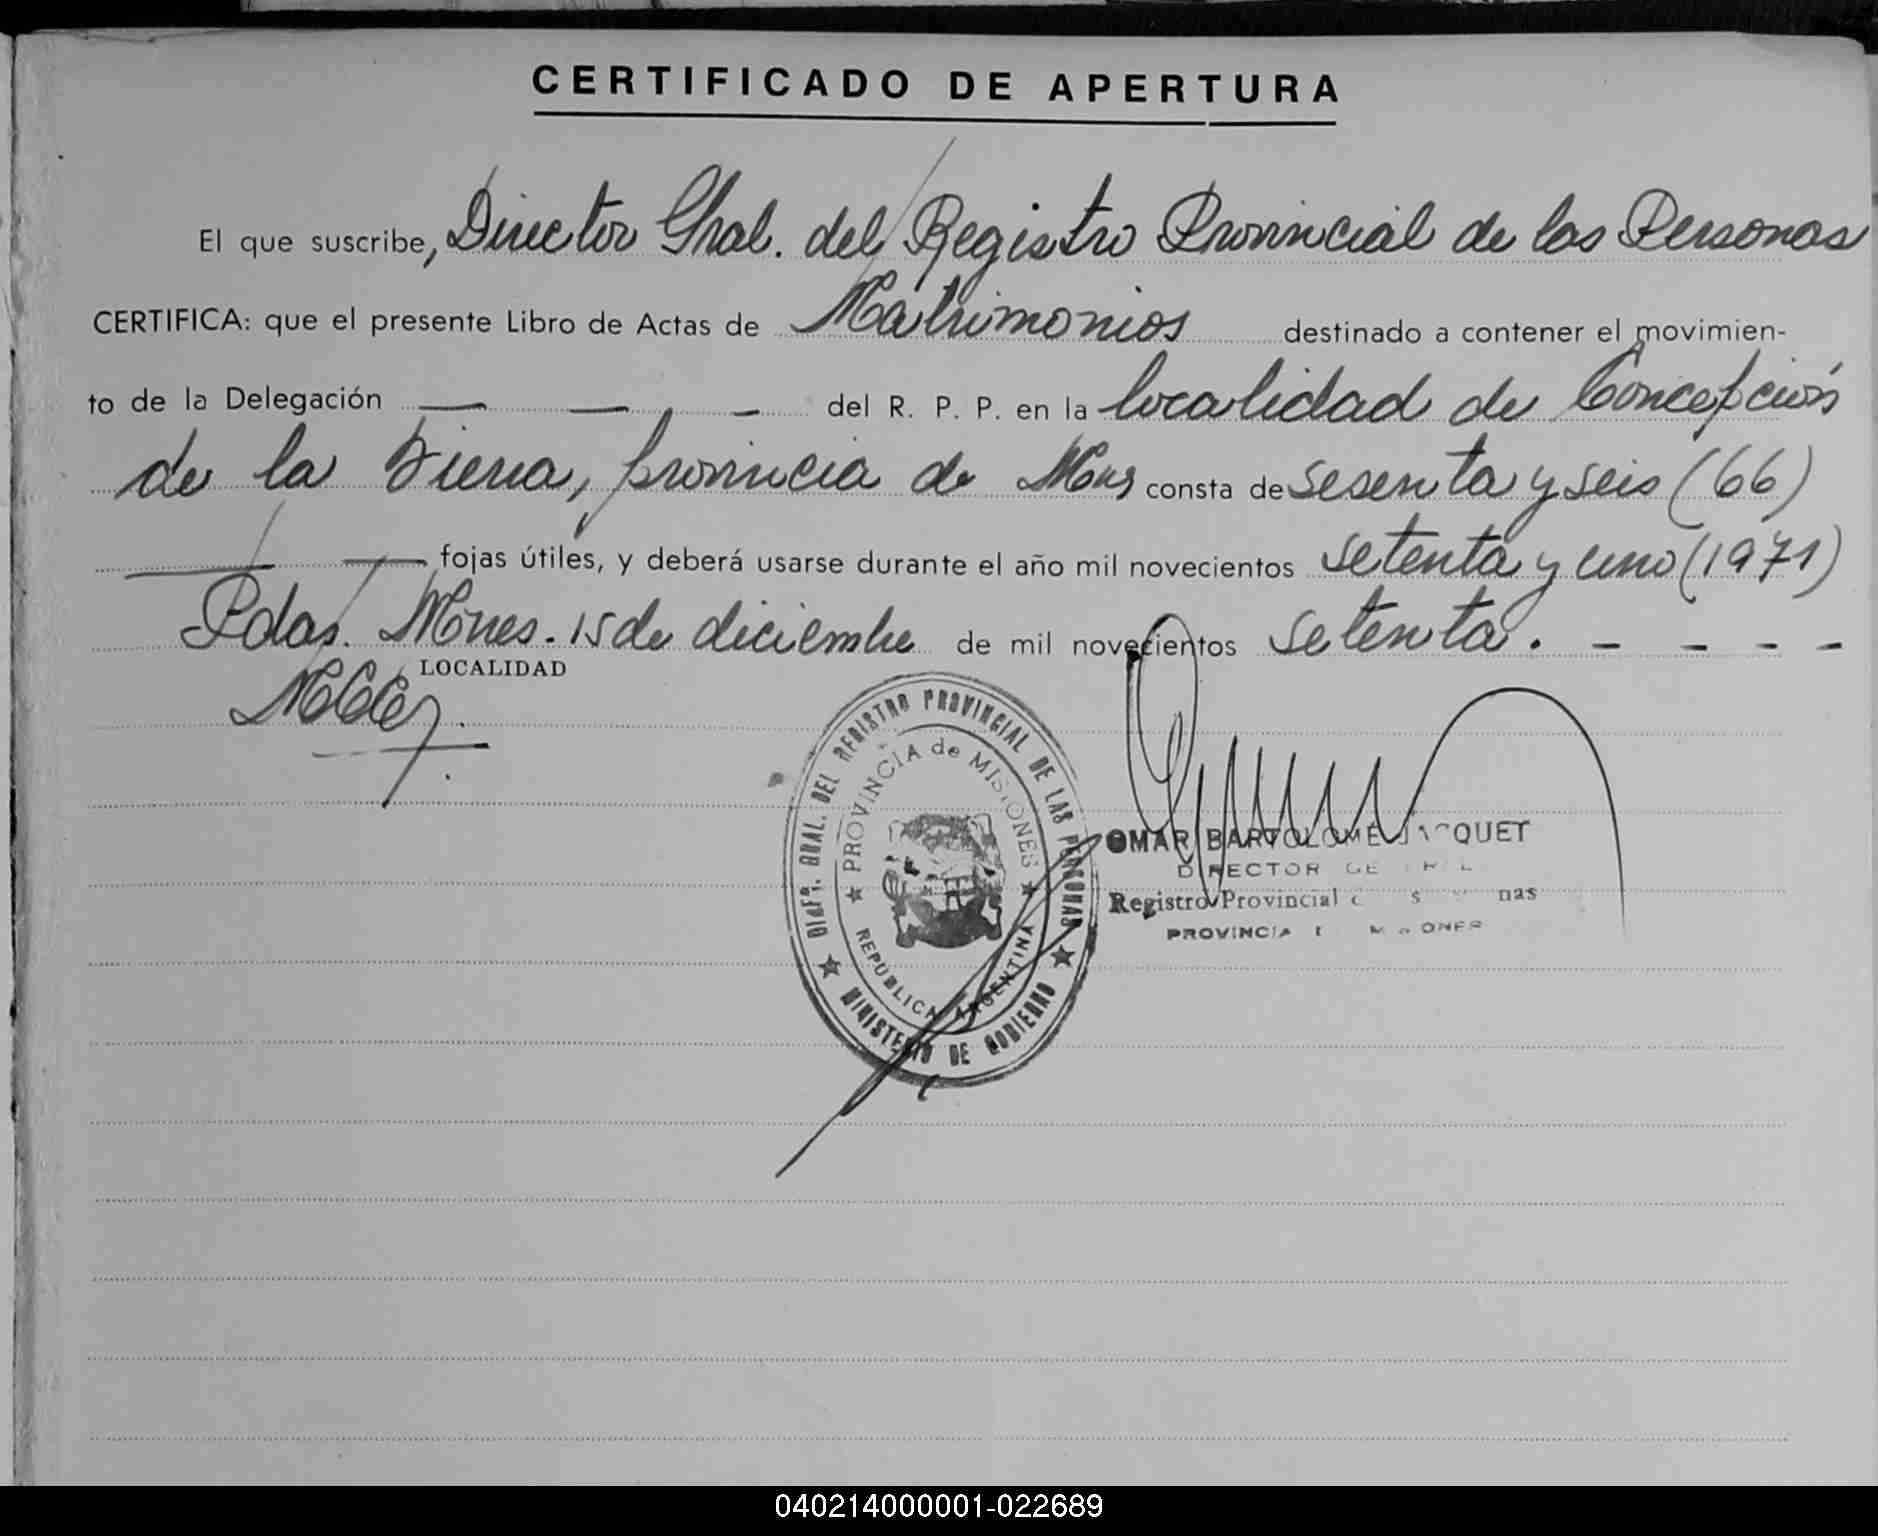 CERTIFICADO DE APERTURA
El que suscribe, Director Gral. del Registro Provincial de las Personas
CERTIFICA: que el presente Libro de Actas de Matrimonios destinado a contener el movimien-
to de la Delegación — — — del R. P. P. en la localidad de Concepción
de la Sierra, provincia de Mnes consta de sesenta y seis (66)
— — fojas útiles, y deberá usarse durante el año mil novecientos setenta y uno (1971)
Pdas. Mnes. 15 de diciembre de mil novecientos setenta. - - - -
LOCALIDAD
DIREC. GRAL. DEL REGISTRO PROVINCIAL DE LAS PERSONAS
PROVINCIA de MISIONES
REPUBLICA ARGENTINA
MINISTERIO DE GOBIERNO
OMAR BARTOLOME JACQUET
DIRECTOR GE R L
Registro Provincial d s nas
PROVINCIA D MISIONES
040214000001-022689